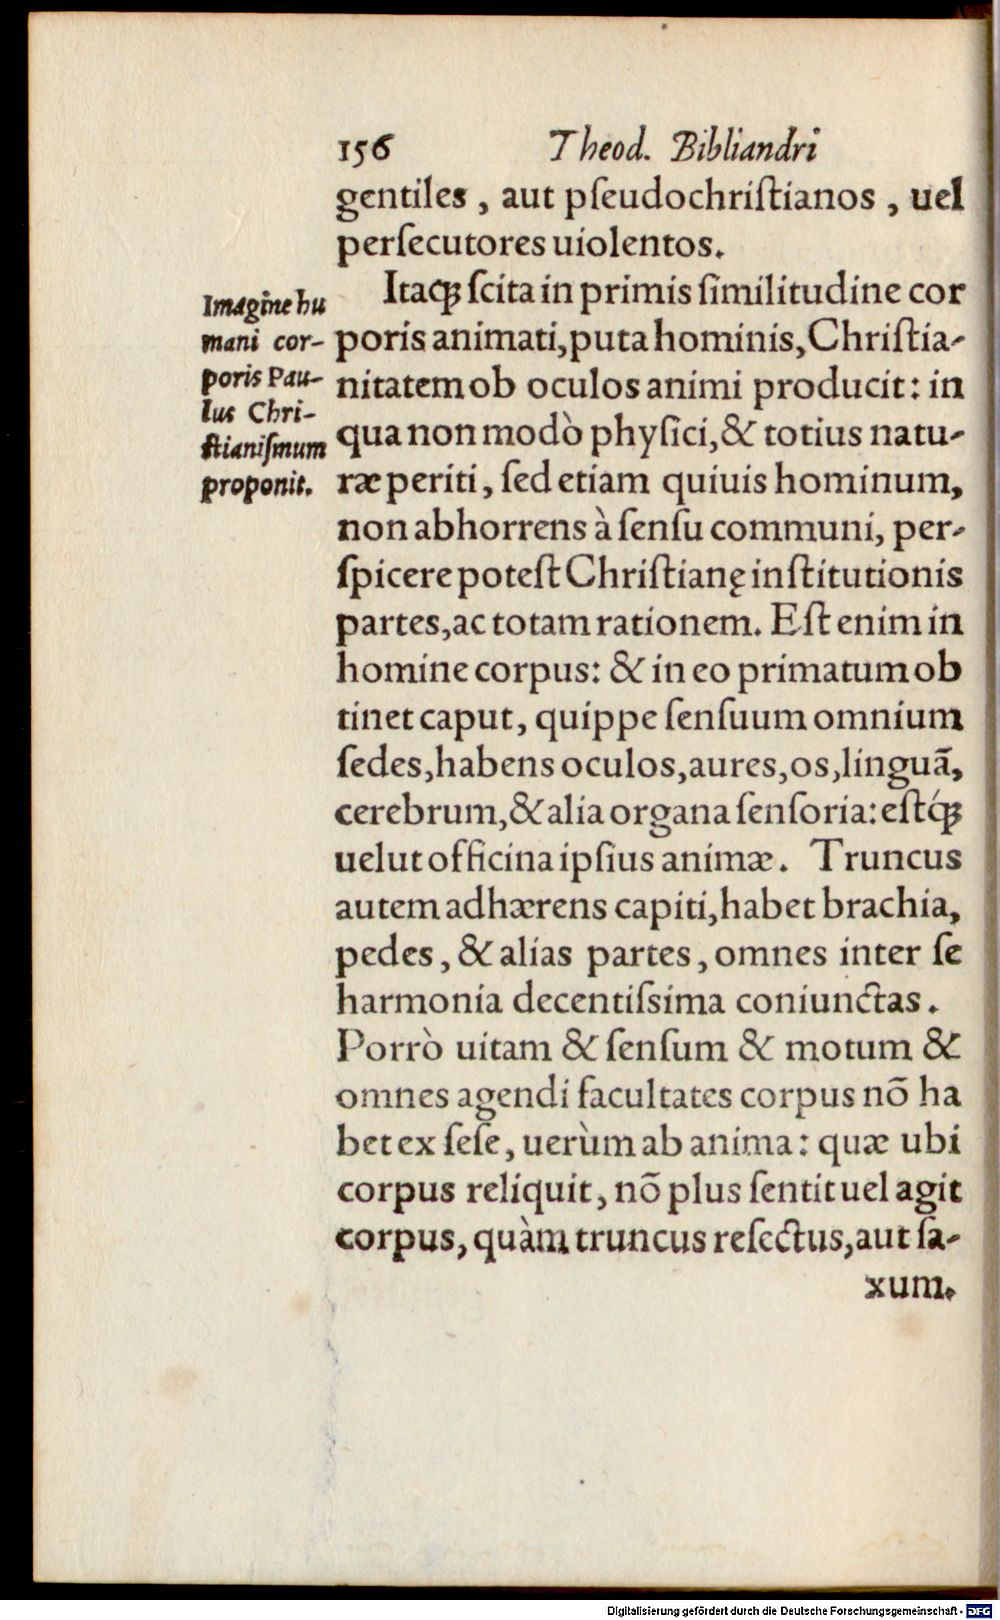 156 Theod. Bibliandri
gentiles, aut pſeudochriſtianos, uel
perſecutores uiolentos.
Imagine hu
mani cor-
poris Pau-
lus Chri-
ſtianiſmum
proponit.
Itaqꝫ ſcita in primis ſimilitudine cor
poris animati, puta hominis, Chriſtia-
nitatem ob oculos animi producit: in
qua non modò phyſici, & totius natu-
ræ periti, ſed etiam quiuis hominum,
non abhorrens à ſenſu communi, per-
ſpicere poteſt Chriſtianę inſtitutionis
partes, ac totam rationem. Eſt enim in
homine corpus: & in eo primatum ob
tinet caput, quippe ſenſuum omnium
ſedes, habens oculos, aures, os, linguã,
cerebrum, & alia organa ſenſoria: eſtq́ꝫ
uelut officina ipſius animæ. Truncus
autem adhærens capiti, habet brachia,
pedes, & alias partes, omnes inter ſe
harmonia decentiſsima coniunctas.
Porrò uitam & ſenſum & motum &
omnes agendi facultates corpus nõ ha
bet ex ſeſe, uerùm ab anima: quæ ubi
corpus reliquit, nõ plus ſentit uel agit
corpus, quàm truncus reſectus, aut ſa-
xum.
Digitalisierung gefördert durch die Deutsche Forschungsgemeinschaft - DFG